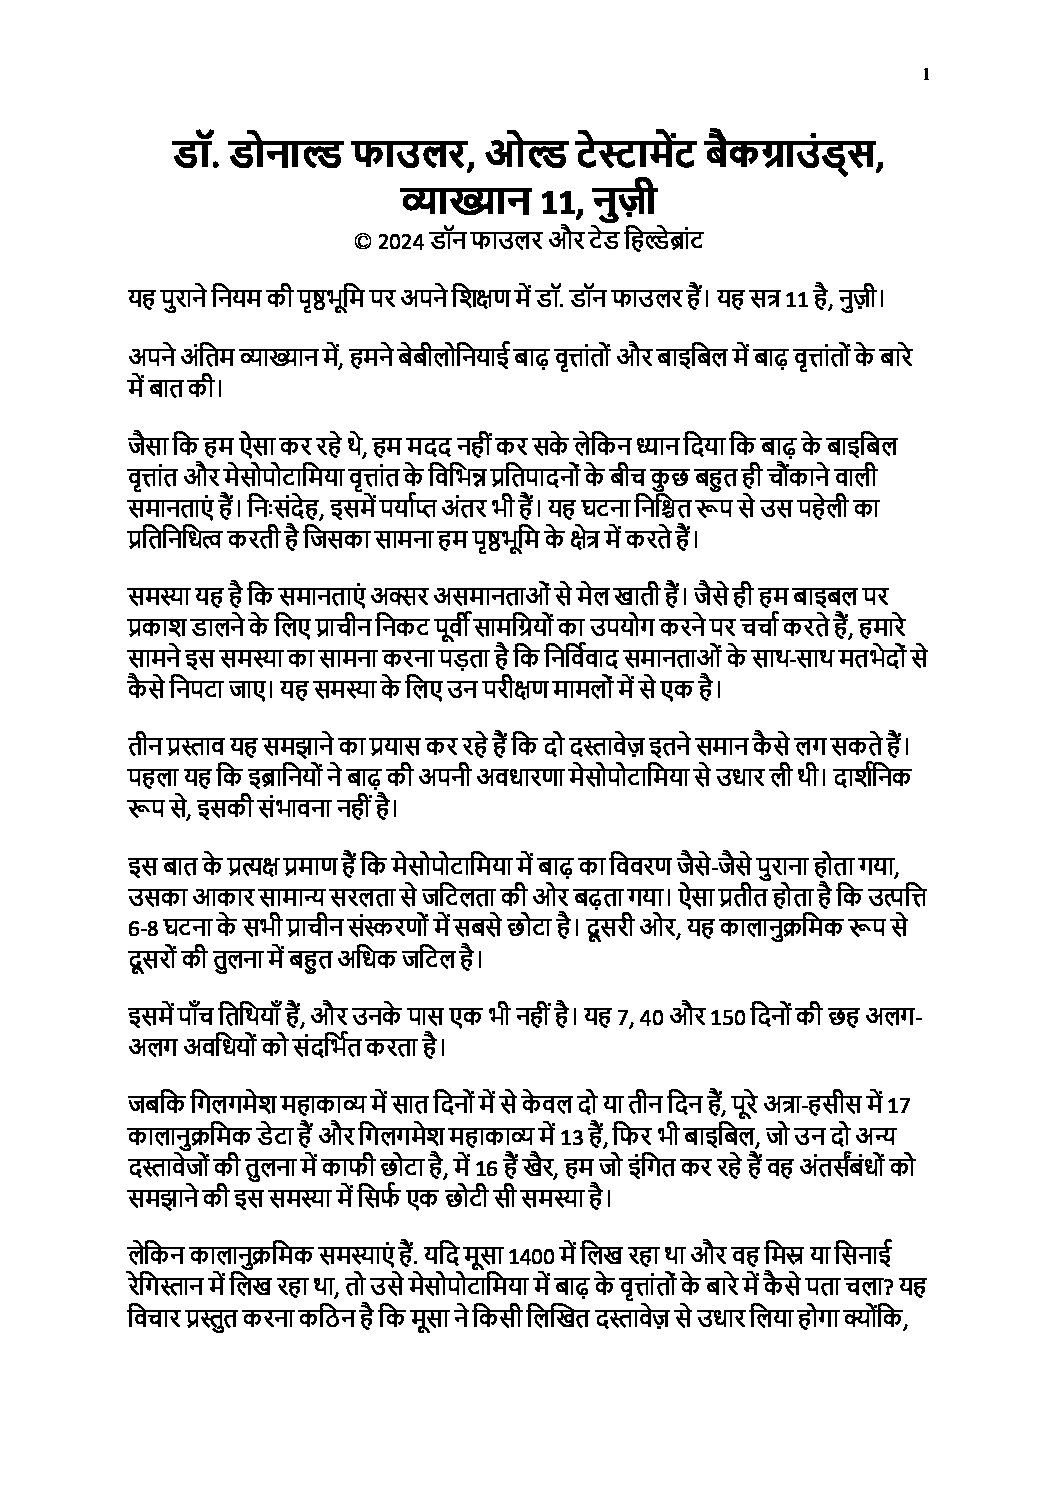 1
डॉ. डोनाल्ड फाउलर, ओल्ड टेस्टामेंट बैकग्राउंड्स,
व्याख्यान 11, नुज़ी
© 2024 डॉन फाउलर और टेड हिल्डेब्रांट
यह पुराने नियम की पृष्ठभूमि पर अपने शिक्षण में डॉ. डॉन फाउलर हैं। यह सत्र 11 है, नुज़ी।
अपने अंतिम व्याख्यान में, हमने बेबीलोनियाई बाढ़ वृत्तांतों और बाइबिल में बाढ़ वृत्तांतों के बारे
में बात की।
जैसा कि हम ऐसा कर रहे थे, हम मदद नहीं कर सके लेकिन ध्यान दिया कि बाढ़ के बाइबिल
वृत्तांत और मेसोपोटामिया वृत्तांत के विभिन्न प्रतिपादनों के बीच कुछ बहुत ही चौंकाने वाली
समानताएं हैं। निःसंदेह, इसमें पर्याप्त अंतर भी हैं। यह घटना निश्चित रूप से उस पहेली का
प्रतिनिधित्व करती है जिसका सामना हम पृष्ठभूमि के क्षेत्र में करते हैं।
समस्या यह है कि समानताएं अक्सर असमानताओं से मेल खाती हैं। जैसे ही हम बाइबल पर
प्रकाश डालने के लिए प्राचीन निकट पूर्वी सामग्रियों का उपयोग करने पर चर्चा करते हैं, हमारे
सामने इस समस्या का सामना करना पड़ता है कि निर्विवाद समानताओं के साथ-साथ मतभेदों से
कैसे निपटा जाए। यह समस्या के लिए उन परीक्षण मामलों में से एक है।
तीन प्रस्ताव यह समझाने का प्रयास कर रहे हैं कि दो दस्तावेज़ इतने समान कैसे लग सकते हैं।
पहला यह कि इब्रानियों ने बाढ़ की अपनी अवधारणा मेसोपोटामिया से उधार ली थी। दार्शनिक
रूप से, इसकी संभावना नहीं है।
इस बात के प्रत्यक्ष प्रमाण हैं कि मेसोपोटामिया में बाढ़ का विवरण जैसे-जैसे पुराना होता गया,
उसका आकार सामान्य सरलता से जटिलता की ओर बढ़ता गया। ऐसा प्रतीत होता है कि उत्पत्ति
6-8 घटना के सभी प्राचीन संस्करणों में सबसे छोटा है। दूसरी ओर, यह कालानुक्रमिक रूप से
दूसरों की तुलना में बहुत अधिक जटिल है।
इसमें पाँच तिथियाँ हैं, और उनके पास एक भी नहीं है। यह 7, 40 और 150 दिनों की छह अलग-
अलग अवधियों को संदर्भित करता है।
जबकि गिलगमेश महाकाव्य में सात दिनों में से केवल दो या तीन दिन हैं, पूरे अत्रा-हसीस में 17
कालानुक्रमिक डेटा हैं और गिलगमेश महाकाव्य में 13 हैं, फिर भी बाइबिल, जो उन दो अन्य
दस्तावेजों की तुलना में काफी छोटा है, में 16 हैं खैर, हम जो इंगित कर रहे हैं वह अंतर्संबंधों को
समझाने की इस समस्या में सिर्फ एक छोटी सी समस्या है।
लेकिन कालानुक्रमिक समस्याएं हैं. यदि मूसा 1400 में लिख रहा था और वह मिस्र या सिनाई
रेगिस्तान में लिख रहा था, तो उसे मेसोपोटामिया में बाढ़ के वृत्तांतों के बारे में कैसे पता चला? यह
विचार प्रस्तुत करना कठिन है कि मूसा ने किसी लिखित दस्तावेज़ से उधार लिया होगा क्योंकि,